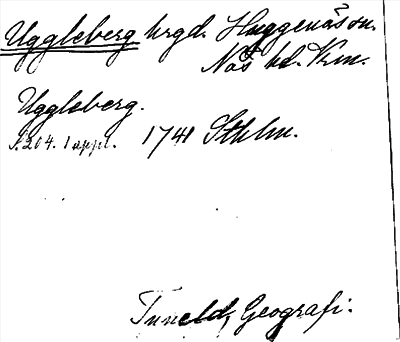 Uggleberg hrgd. Huggenäs sn.
Näs hd. Vrm.
Uggleberg.
S. 204. 1 uppl. 1741 Sthlm.
Tuneld, Geografi.